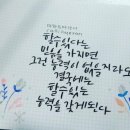 할수있다는
믿음을 가지면
그런 능력이 없을지라도
결국에는
할수있는
능력을 갖게된다